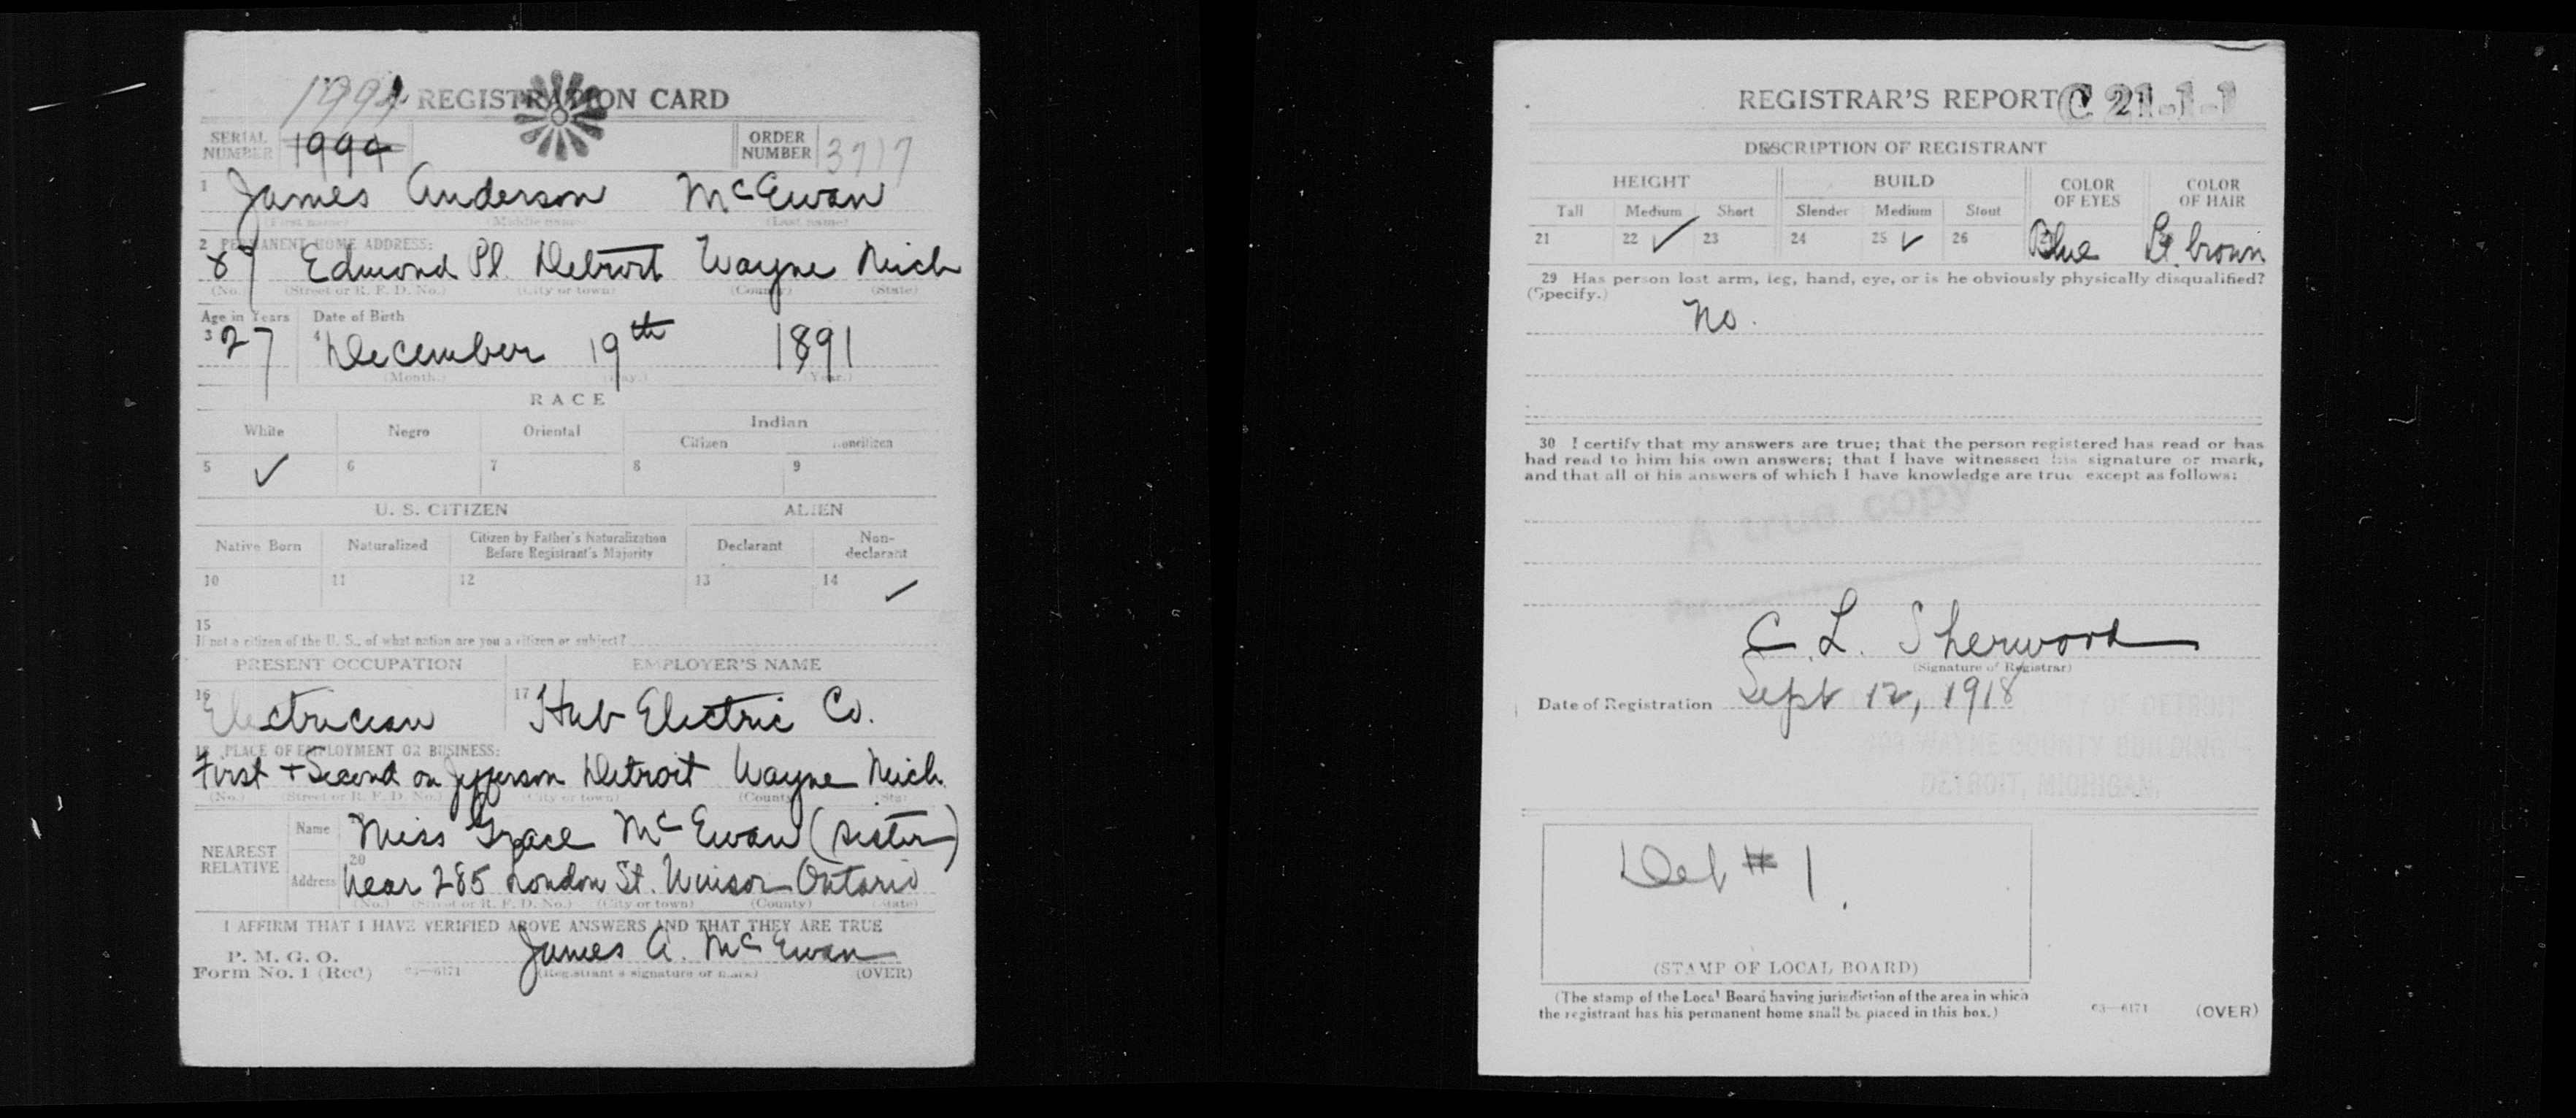 REGISTRATION CARD
SERIAL NUMBER 1994
ORDER NUMBER 3717
1 James Anderson McEwan
(First name) (Middle name) (Last name)
2 PERMANENT HOME ADDRESS:
89 Edmond Pl Detroit Wayne Mich
(No.) (Street or R. F. D. No.) (City or town) (County) (State)
Age in Years Date of Birth
3 27 4 December 19th 1891
(Month.) (Day.) (Year.)
RACE
White Negro Oriental Indian
Citizen Noncitizen
5 ✓ 6 7 8 9
U. S. CITIZEN ALIEN
Native Born Naturalized Citizen by Father's Naturalization Before Registrant's Majority Declarant Non-declarant
10 11 12 13 14 ✓
15
If not a citizen of the U. S., of what nation are you a citizen or subject?
PRESENT OCCUPATION EMPLOYER'S NAME
16 Electrician 17 Hub Electric Co.
18 PLACE OF EMPLOYMENT OR BUSINESS:
First + Second on Jefferson Detroit Wayne Mich
(No.) (Street or R. F. D. No.) (City or town) (County) (State)
NEAREST RELATIVE
Name Miss Grace McEwan (sister)
Address 20 Near 285 London St. Winsor Ontario
(No.) (Street or R. F. D. No.) (City or town) (County) (State)
I AFFIRM THAT I HAVE VERIFIED ABOVE ANSWERS AND THAT THEY ARE TRUE
P. M. G. O.
Form No. 1 (Red) 03—6171 James A. McEwan
(Registrant's signature or mark) (OVER)
REGISTRAR'S REPORT C 21-1-1
DESCRIPTION OF REGISTRANT
HEIGHT BUILD COLOR OF EYES COLOR OF HAIR
Tall Medium Short Slender Medium Stout
21 22 ✓ 23 24 25 ✓ 26 Blue Lt. brown
29 Has person lost arm, leg, hand, eye, or is he obviously physically disqualified?
(Specify.)
No.
30 I certify that my answers are true; that the person registered has read or has
had read to him his own answers; that I have witnessed his signature or mark,
and that all of his answers of which I have knowledge are true except as follows:
A true copy
C. L. Sherwood
(Signature of Registrar)
Date of Registration Sept 12, 1918
CITY OF DETROIT
WAYNE COUNTY BUILDING
DETROIT, MICHIGAN.
Det # 1.
(STAMP OF LOCAL BOARD)
(The stamp of the Local Board having jurisdiction of the area in which
the registrant has his permanent home shall be placed in this box.)
03—6171 (OVER)